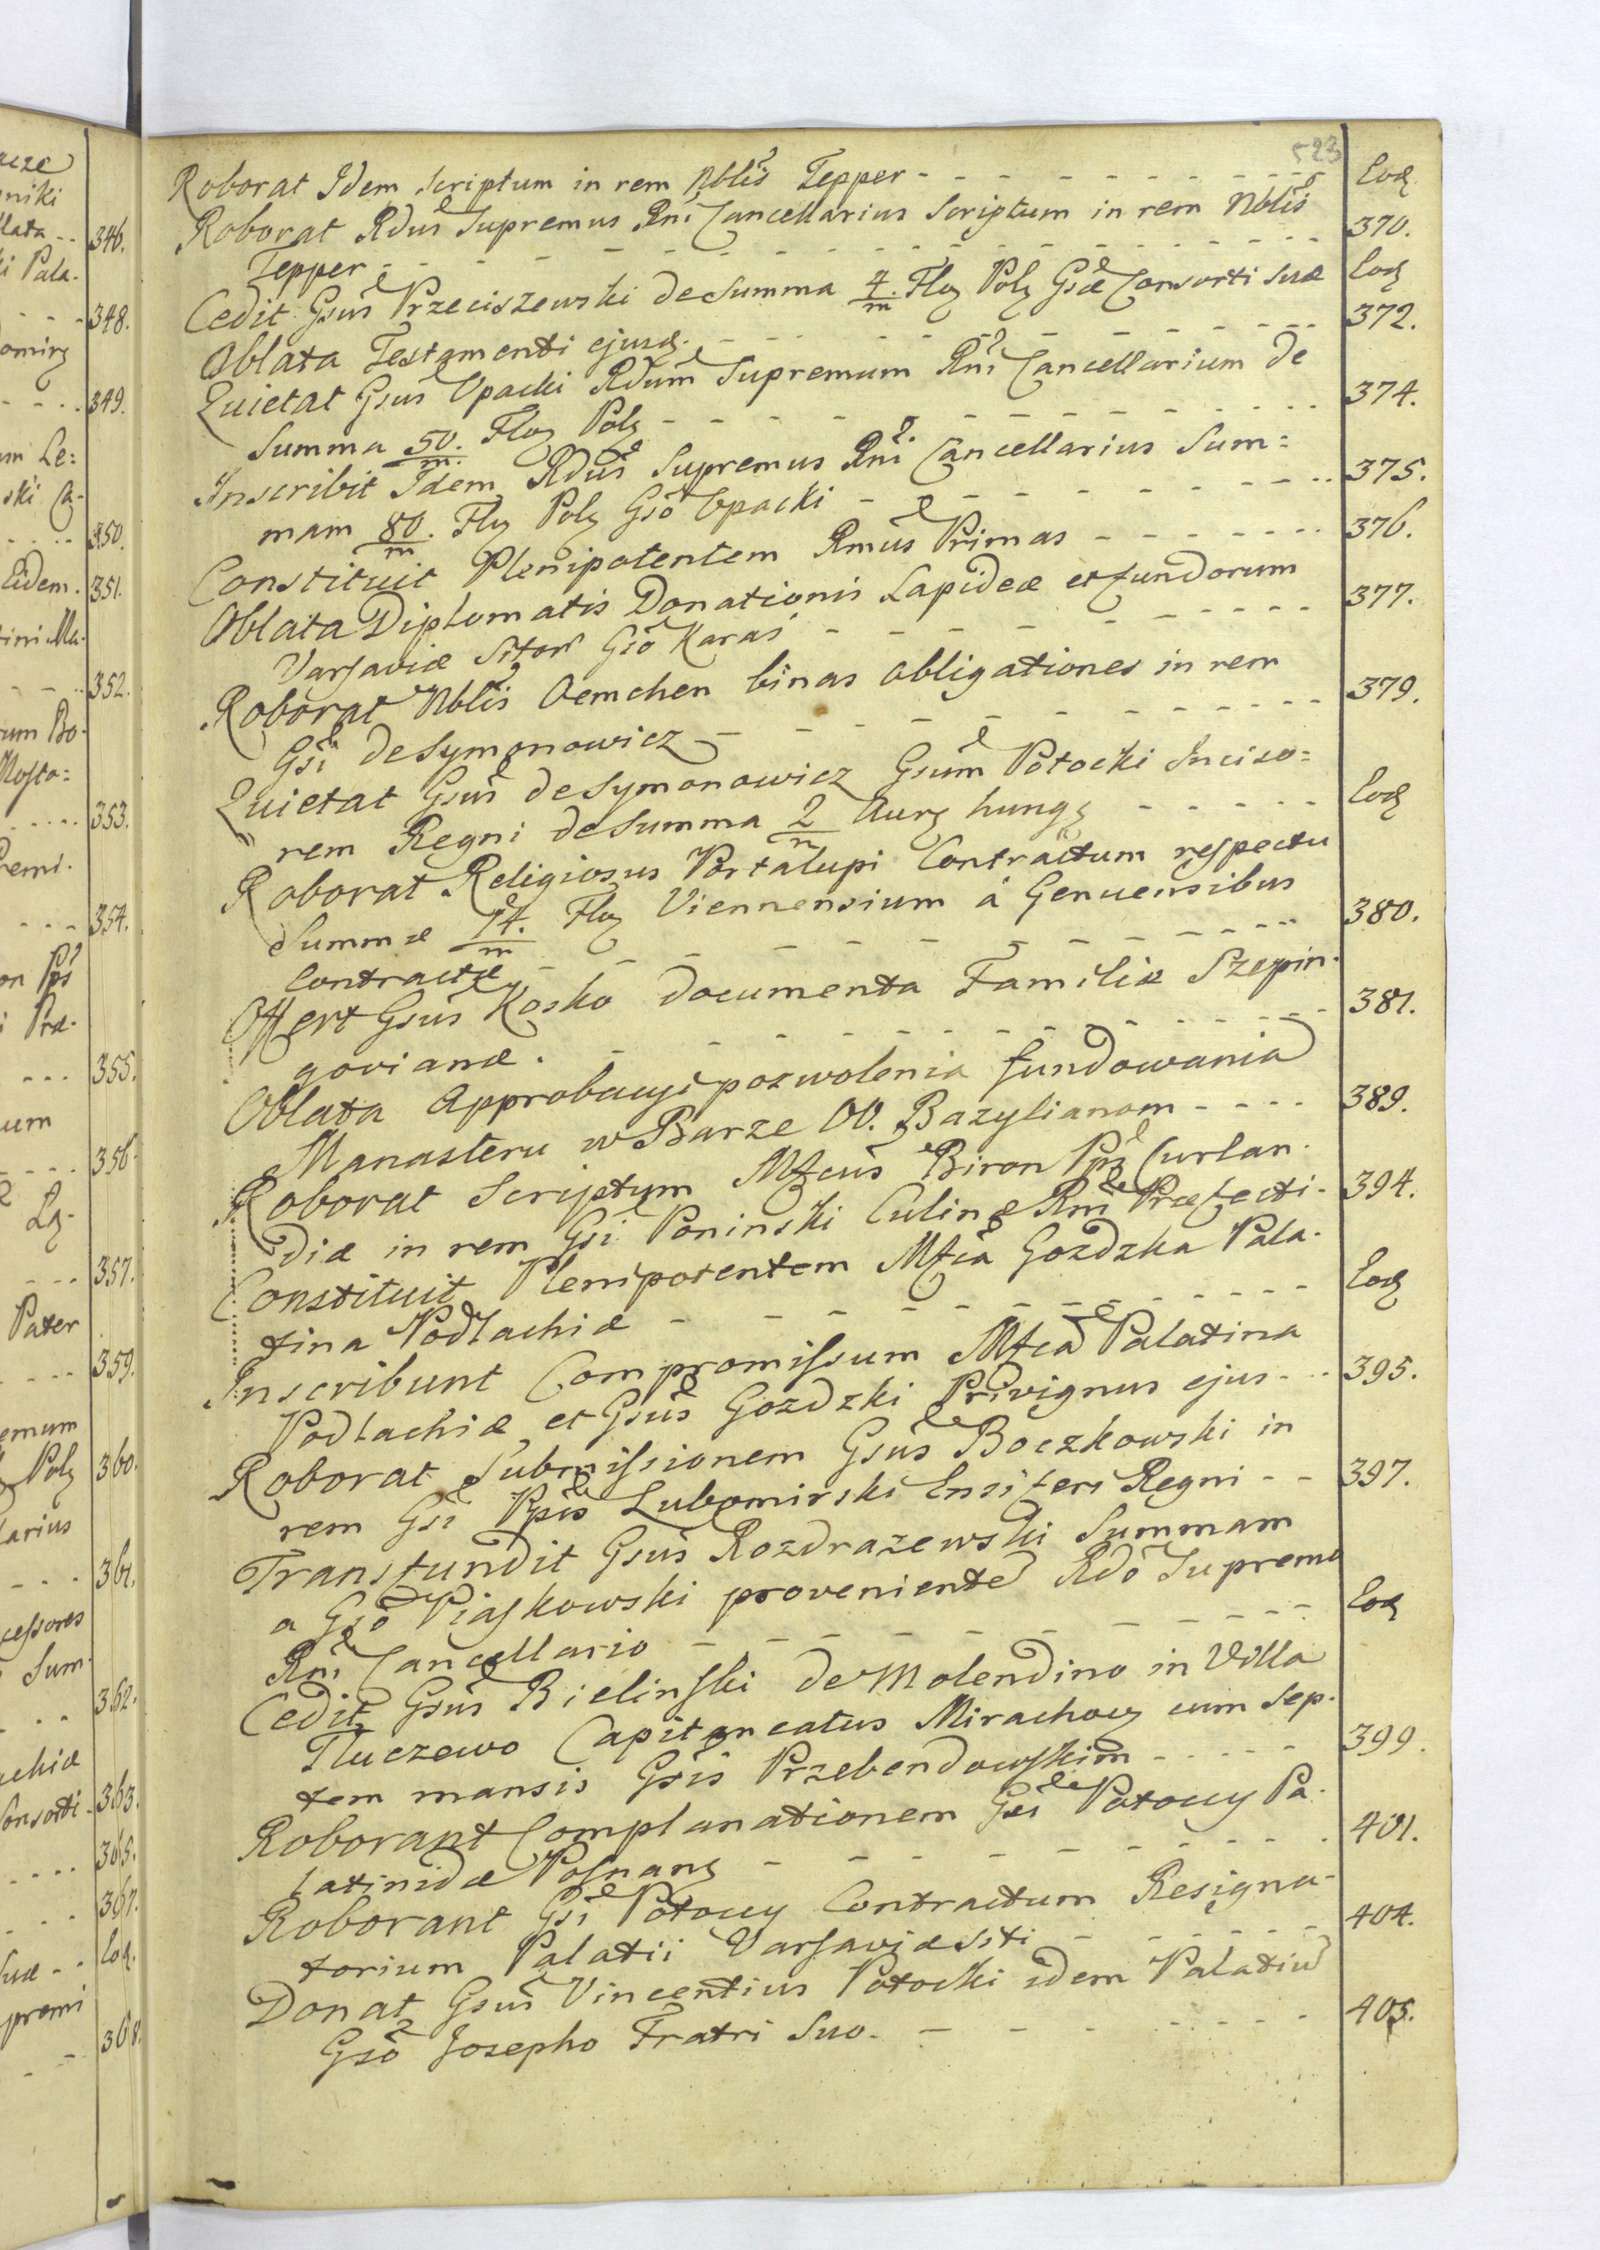 523
Roborat Idem Scriptum in rem Nblis Tepper - - - Eod.
Roborat Rdus Supremus Rni Cancellarius Scriptum in rem Nblis
Tepper - - - 370.
Cedit Gsus Przeciszewski de Summa 4/m Flor Pol Gsae Consorti Suae Eod
Oblata Testamenti ejusd. - - - 372.
Quietat Gsus Opacki Rdum Supremum Rni Cancellarium de
Summa 50/m. Flor Pol - - - 374.
Inscribit Idem Rdus Supremus Rni Cancellarius Sum=
mam 80/m. Flor Pol Gso Opacki - - - 375.
Constituit Plenipotentem Rmus Primas - - - 376.
Oblata Diplomatis Donationis Lapideae et fundorum
Varsaviae Sitor Gso Karaś - - - 377.
Roborat Nblis Oemchen binas obligationes in rem
Gsi de Symonowicz - - - 379.
Quietat Gsus de Symonowicz Gsum Potocki Inciso=
rem Regni de Summa 2/m Aur hung - - - Eod
Roborat Religiosus Portalupi Contractum respectu
Summae 14/m. Flor Viennensium á Genuensibus
Contractae - - - 380.
Offert Gsus Kosko Documenta Familiae Szepin-
govianae. - - - 381.
Oblata Approbacyi pozwolenia fundowania
Manasteru w Barze OO. Bazylianom - - - 389.
Roborat Scriptum Mfcus Biron Pps Curlan-
diae in rem Gsi Poninski Culinae Rni Praefecti - 394.
Constituit Plenipotentem Mfca Gozdzka Pala-
tina Podlachiae - - - Eod
Inscribunt Compromissum Mfca Palatina
Podlachiae et Gsus Gozdzki Privignus ejus - - - 395.
Roborat Submissionem Gsus Boczkowski in
rem Gsi Ppis Lubomirski Ensiferi Regni - - 397.
Transfundit Gsus Rozdrazewski Summam
a Gso Piaskowski proveniente Rdo Supremo
Rni Cancellario - - - Eod
Cedit Gsus Bielinski de Molendino in Villa
Tluczewo Capitaneatus Mirachow cum Sep-
tem mansis Gsis Przebendowskim - - - 399.
Roborant Complanationem Gsi Potoccy Pa-
latinidae Posnan - - - 401.
Roborant Gsi Potoccy Contractum Resigna-
torium Palatii Varsaviae Siti - - - 404.
Donat Gsus Vincentius Potocki idem Palatiu
Gso Josepho Fratri Suo. - - - 405.
346.
348.
349.
350.
351.
352.
353.
354.
355.
356.
357.
359.
360.
361.
362.
363.
365.
367.
Eod.
368.